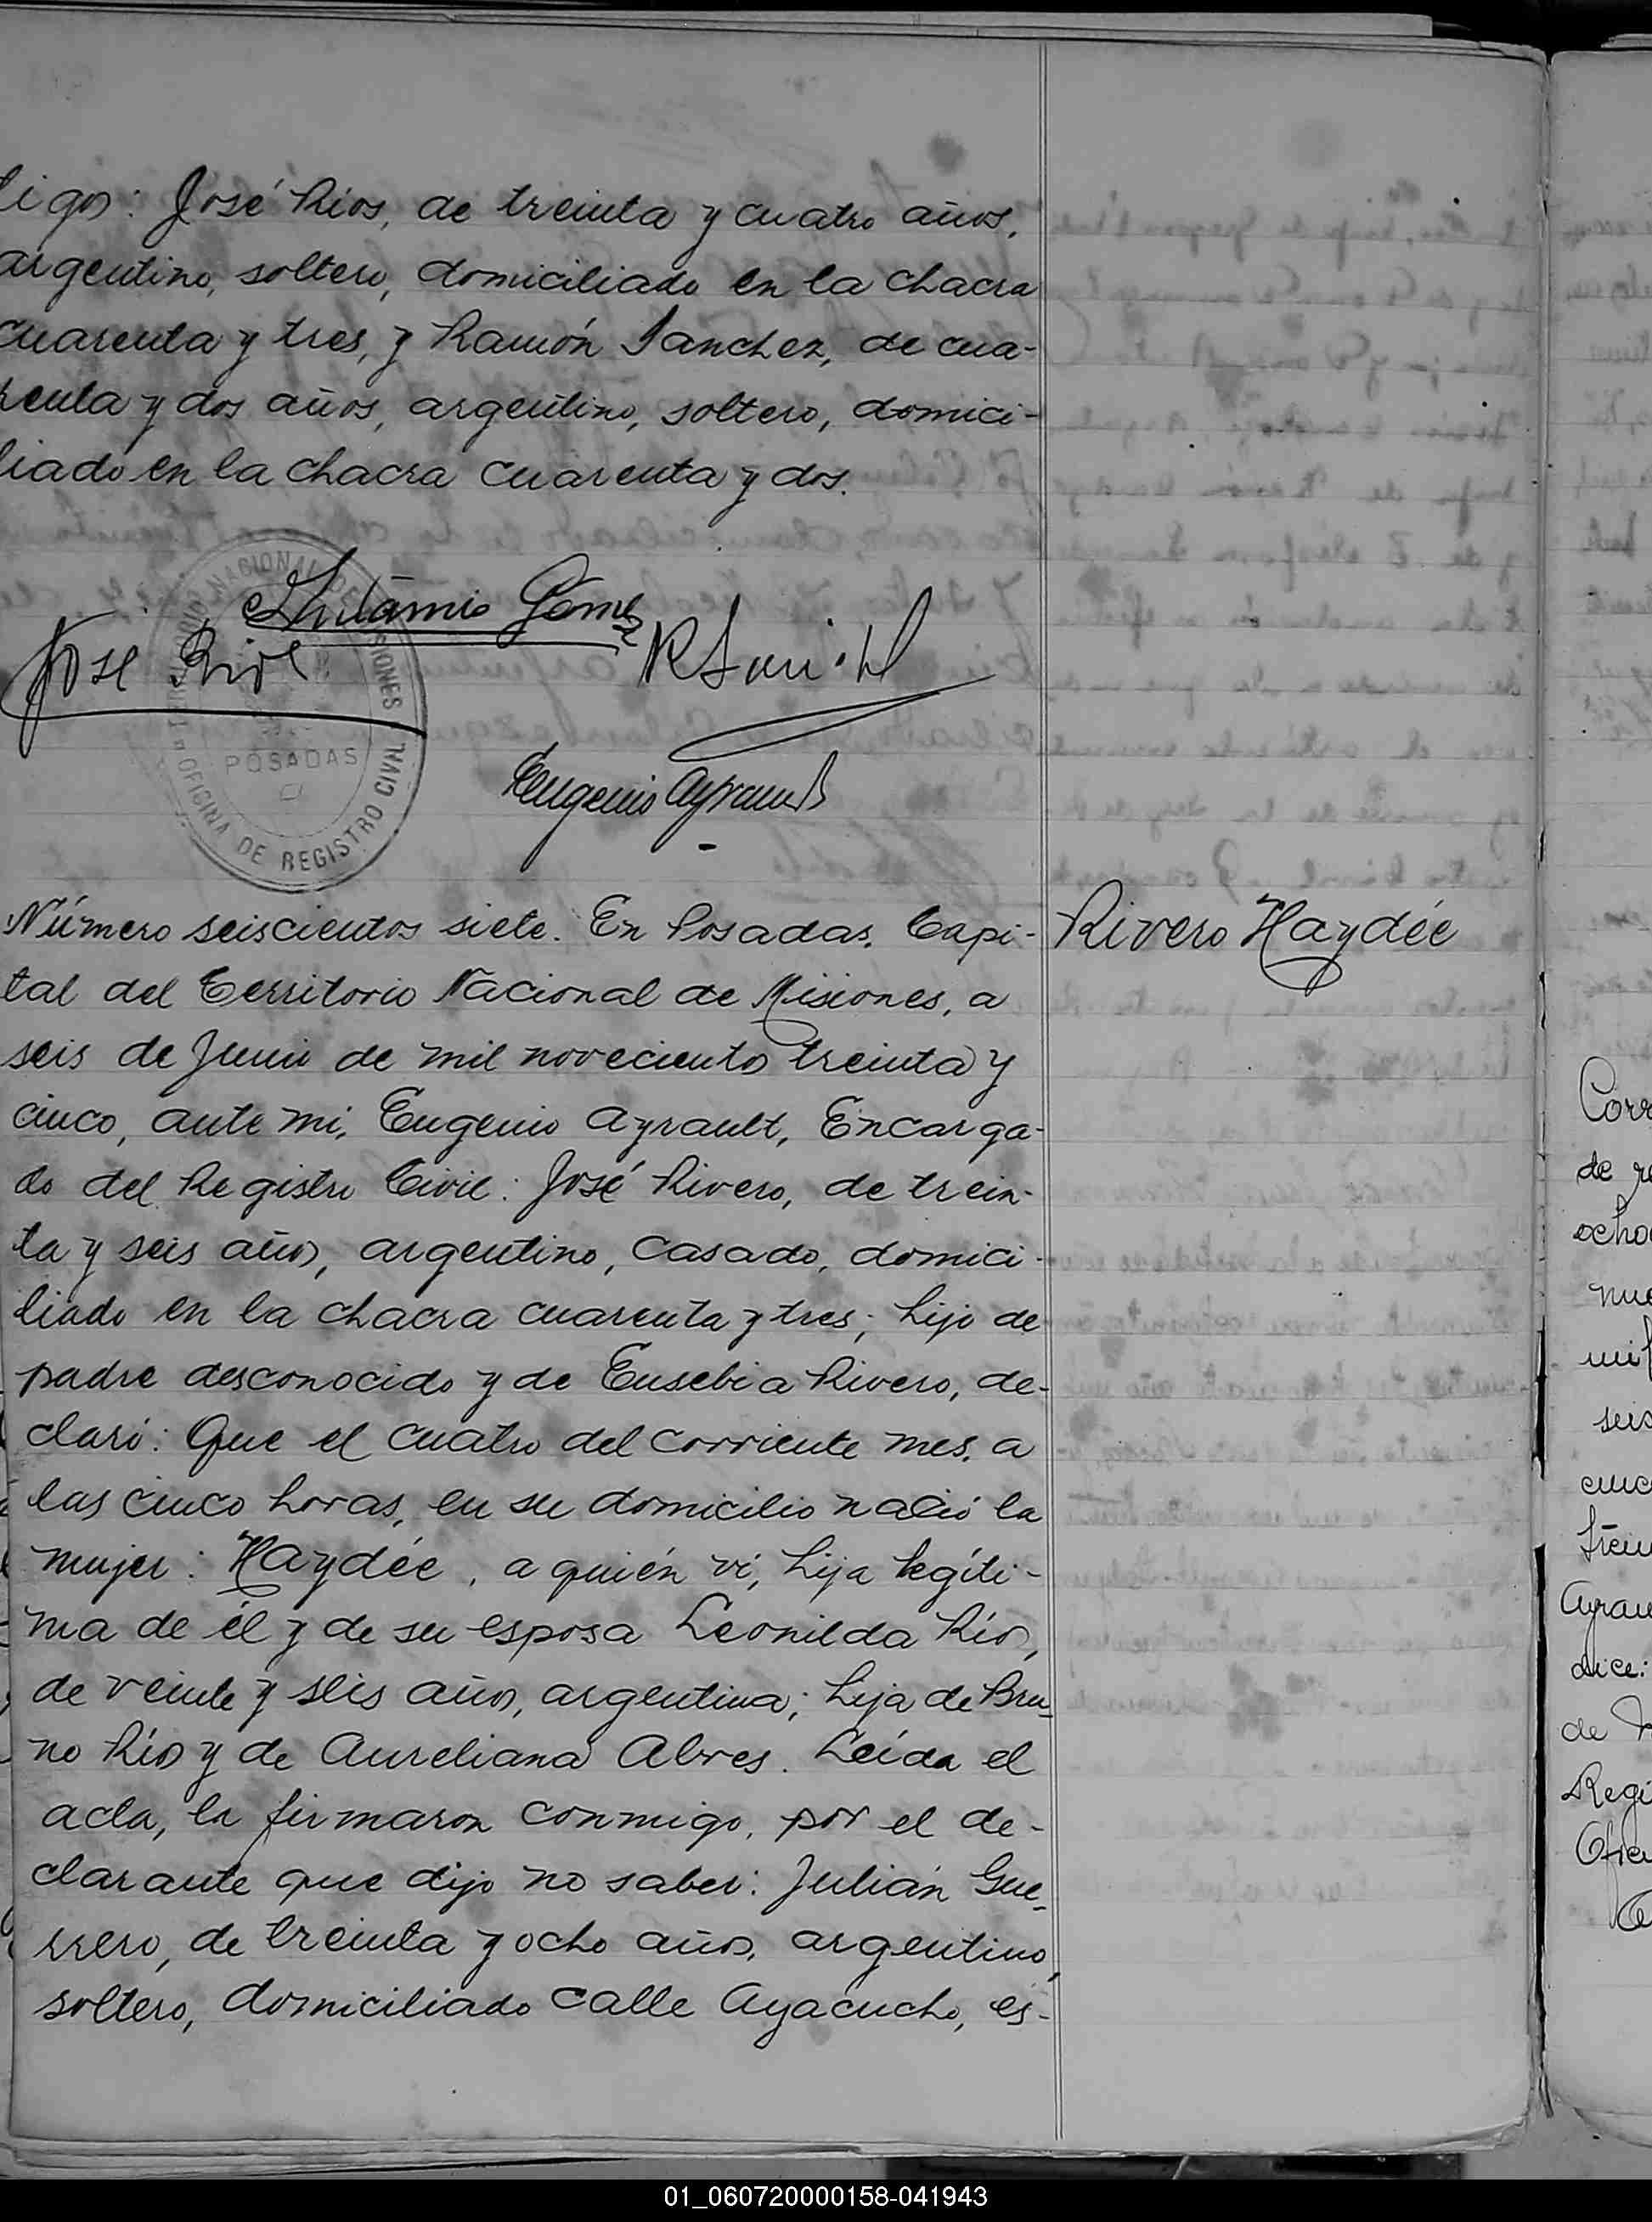 tigos: José Ríos, de treinta y cuatro años,
argentino, soltero, domiciliado en la chacra
cuarenta y tres, y Ramón Sanchez, de cua-
renta y dos años, argentino, soltero, domici-
liado en la chacra cuarenta y dos.
Antonio Gomez
José Rios
POSADAS
OFICINA DE REGISTRO CIVIL
Eugenio Ayrault
Número seiscientos siete. En Posadas, Capi-
Rivero Haydée
tal del Territorio Nacional de Misiones, a
seis de Junio de mil noveciento treinta y
cinco, ante mí, Eugenio Ayrault, Encarga-
do del Registro Civil: José Rivero, de trein-
ta y seis años, argentino, casado, domici-
liado en la chacra cuarenta y tres; hijo de
padre desconocido y de Eusebia Rivero, de-
claró: Que el cuatro del corriente mes, a
las cinco horas, en su domicilio nació la
mujer: Haydée, a quién ví, hija legíti-
ma de él y de su esposa Leonilda Ríos,
de veinte y seis años, argentina; hija de Bru-
no Ríos y de Aureliana Alves. Leída el
acta, la firmaron conmigo, por el de-
clarante que dijo no saber: Julián Gue-
rrero, de treinta y ocho años, argentino,
soltero, domiciliado calle Ayacucho, es-
01_060720000158-041943